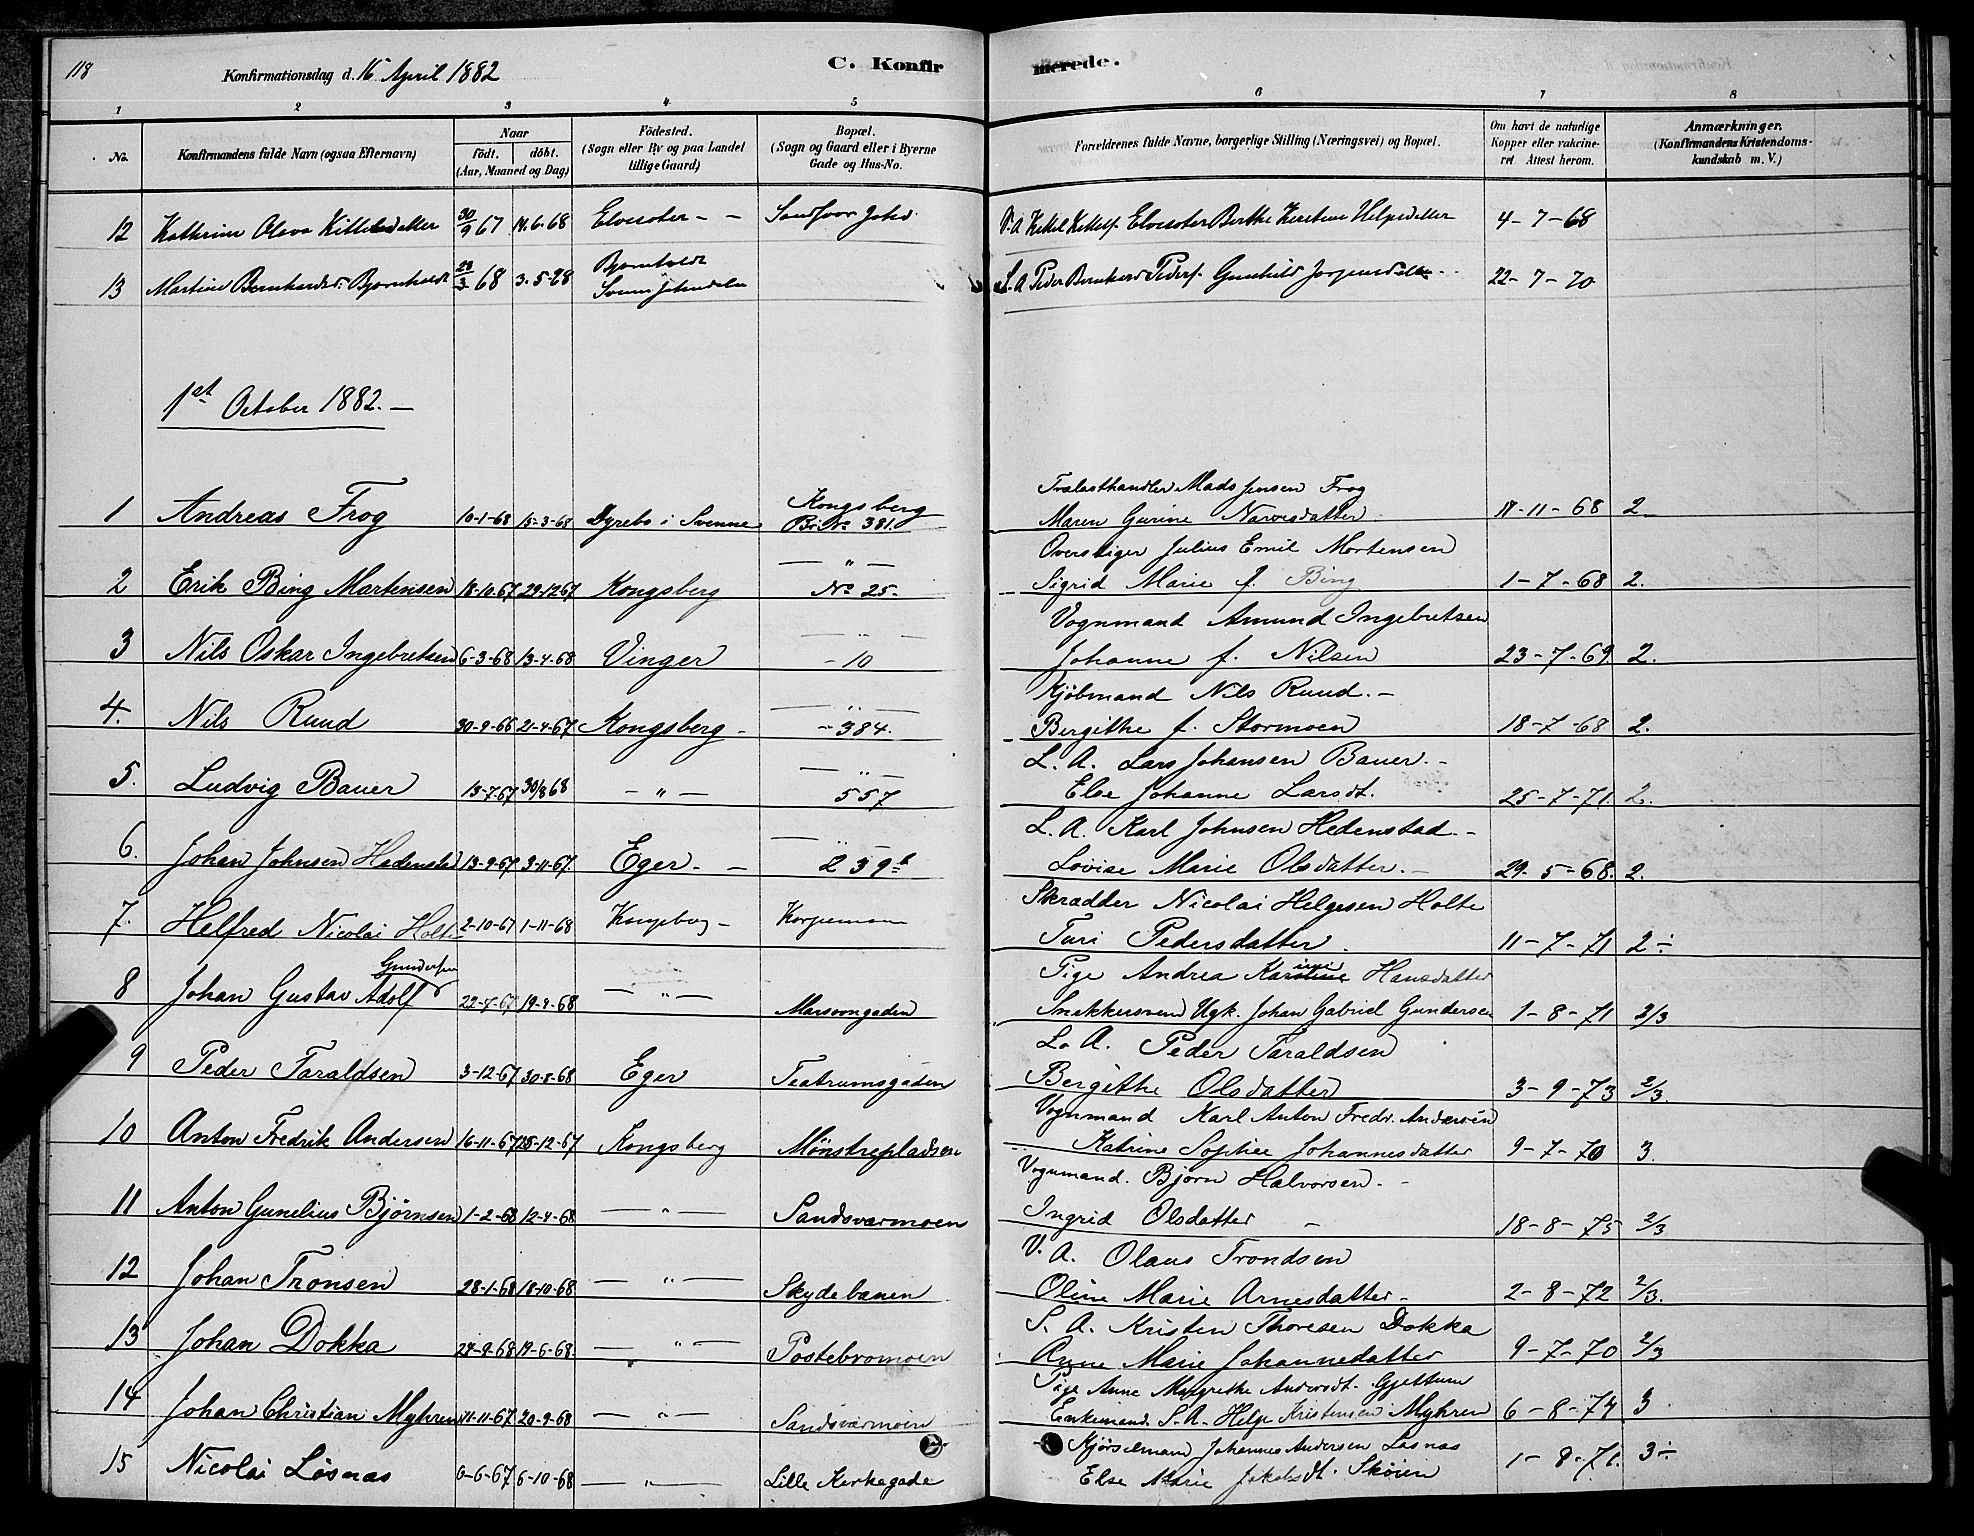 118
Konfirmationsdag d. 16 April 1882
C. Konfirmerede.
1 2 3 4 5 6 7 8
No.
Konfirmandens fulde Navn (ogsaa Efternavn)
Naar
födt. döbt.
(Aar, Maaned og Dag)
Födested.
(Sogn eller By og paa Landet
tillige Gaard)
Bopæl.
(Sogn og Gaard eller i Byerne
Gade og Hus-No.
Forældrenes fulde Navne, borgerlige Stilling (Næringsvei) og Bopæl.
Om havt de naturlige
Kopper eller vakcineret
Attest herom.
Anmærkninger.
(Konfirmandens Kristendomskundskab
m. V.)
12 Kathrine Olava Kittelsdatter 30/9 67 14.6.68 4-7-68
13 Martin 3/68 3.5.68 22-7-70
1st October 1882.
Trælasthandler Mads Jensen Frog
1 Andreas Frog 10-1-68 15-3-68 Dyrebo i Svenne Kongsberg No 381. Maren Gurine Narvesdatter 11-68 2
Overstiger Julius Emil Mortensen
2 Erik Bing Martensen 18-10-67 29-12-67 Kongsberg — " — No 25. Sigrid Marie f. Bing 1-7-68 2.
Vognmand Amund Ingebretsen
3 Nils Oskar Ingebretsen 6-3-68 13-4-68 Vinger — " — 10 Johanne f. Nilsen 23-7-69 2.
Kjöbmand Nils Ruud.
4. Nils Ruud 30-9-66 21-4-67 Kongsberg — " — 384. Bergithe f. Stormoen 18-7-68 2.
L. A. Lars Johansen Bauer.
5. Ludvig Bauer 13-7-67 30/8 68 — " — — " — 557 Else Johanne Larsdt. 25-7-71 2.
L. A. Karl Johnsen Hedenstad
6. Johan Johnsen Hedensta 13-9-67 3-11-67. Eger — " — 239b Lovise Marie Olsdatter. 29-5-68. 2.
Skrædder Nicolai Helgesen Holte
7. Helfred Nicolai Holte 2-10-67 1-11-68 Kongsberg Turi Pedersdatter. 11-7-71 2÷
Pige Andrea Hansdatter
8 Johan Gustav Adolf Gundersen 22-7-67 19-4-68 — " — Snekkersvend Ugk. Johan Gabriel Gundersen 1-8-71 2/3
L. A. Peder Taraldsen
9 Peder Taraldsen 3-12-67 30-8-68 Eger Teatrumsgaden Bergithe Olsdatter 3-9-73 2/3.
Vognmand Karl Anton Fredr. Andersen
10 Anton Fredrik Andersen 16-11-67 25-12-67 Kongsberg Mönstrepladsen Katrine Sophie Johannesdatter 9-7-70 3.
Vognmand. Björn Halvorsen.
11 Anton Gunelius Björnsen 1-2-68 12-4-68 — " — Sandsværmoen Ingrid Olsdatter 18-8-75 2/3
V. A. Olaus Trondsen
12 Johan Tronsen 28-1-68 18-10-68 — " — Skydebanen Oline Marie Arnesdatter 2-8-72 2/3.
S. A. Kristen Thoresen Dokka
13 Johan Dokka 19-6-68. — " — Postebromoen Anne Marie Johannedatter 9-7-70 2/3
Pige Anne Margrethe Andersdt. Gjettum
14 Johan Christian Myhren 11-11-67 20-9-68 — " — Sandsværmoen Enkemand. S. A. Helge Kristensen Myhren 6-8-74 3
Kjörselmand Johannes Andersen Løsnas
15 Nicolai Løsnas 6-6-67 6-10-68 — " — Lille Kirkegade Else Marie Jakobsdt. Skóien 1-8-71. 3÷